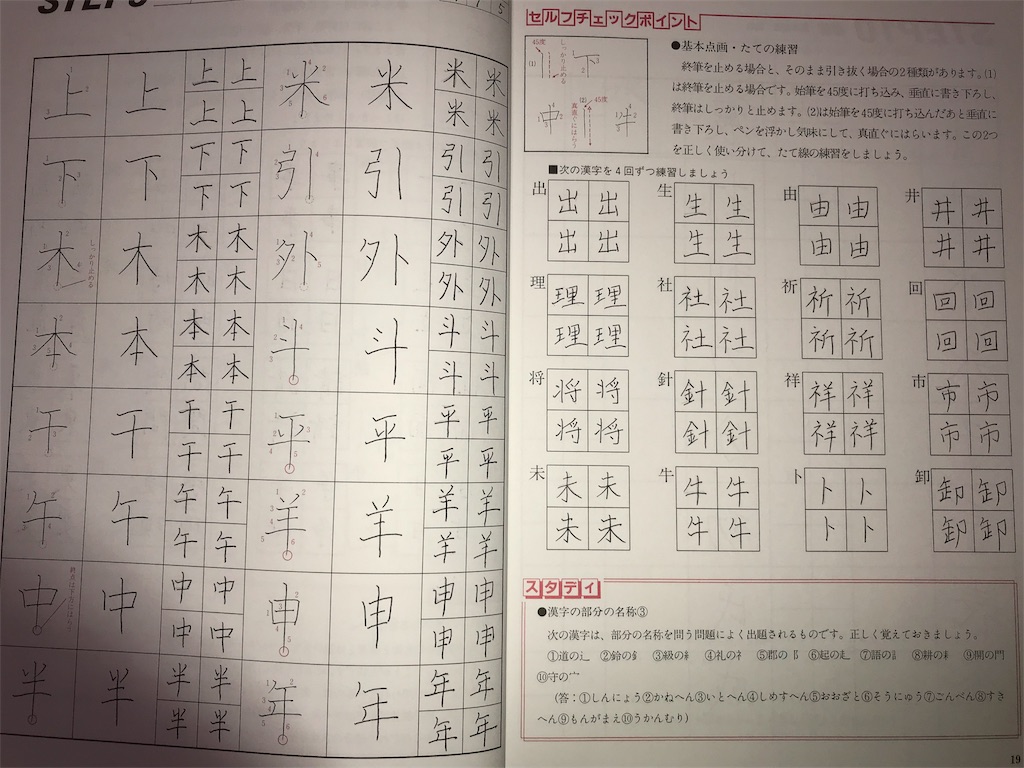 上 上 上 上 米 米 米 米
上 上 米 米
下 下 下 下 引 引 引 引
下 下 引 引
木 しっかり止める 木 木 木 外 外 外 外
木 木 外 外
本 本 本 本 斗 斗 斗 斗
本 本 斗 斗
干 干 干 干 平 平 平 平
干 干 平 平
午 午 午 午 羊 羊 羊 羊
午 午 羊 羊
中 中 中 中 申 申 申 申
中 中 申 申
半 半 半 半 年 年 年 年
半 半 年 年
セルフチェックポイント
45度
(1)
しっかり止める
下
中
(2)
45度
真直ぐにはらう
●基本点画・たての練習
終筆を止める場合と、そのまま引き抜く場合の2種類があります。(1)
は終筆を止める場合です。始筆を45度に打ち込み、垂直に書き下ろし、
終筆はしっかりと止めます。(2)は始筆を45度に打ち込んだあと垂直に
書き下ろし、ペンを浮かし気味にして、真直ぐにはらいます。この2つ
を正しく使い分けて、たて線の練習をしましょう。
■次の漢字を4回ずつ練習しましょう
出 出 出 生 生 生 由 由 由 井 井 井
出 出 生 生 由 由 井 井
理 理 理 社 社 社 祈 祈 祈 回 回 回
理 理 社 社 祈 祈 回 回
将 将 将 針 針 針 祥 祥 祥 市 市 市
将 将 針 針 祥 祥 市 市
未 未 未 牛 牛 牛 ト ト ト 卸 卸 卸
未 未 牛 牛 ト ト 卸 卸
スタディ
●漢字の部分の名称③
次の漢字は、部分の名称を問う問題によく出題されるものです。正しく覚えておきましょう。
①道の辶 ②鈴の釒 ③級の糹 ④礼の礻 ⑤郡の阝 ⑥起の走 ⑦語の訁 ⑧耕の耒 ⑨開の門
⑩守の宀
(答：①しんにょう②かねへん③いとへん④しめすへん⑤おおざと⑥そうにゅう⑦ごんべん⑧すき
へん⑨もんがまえ⑩うかんむり)
19